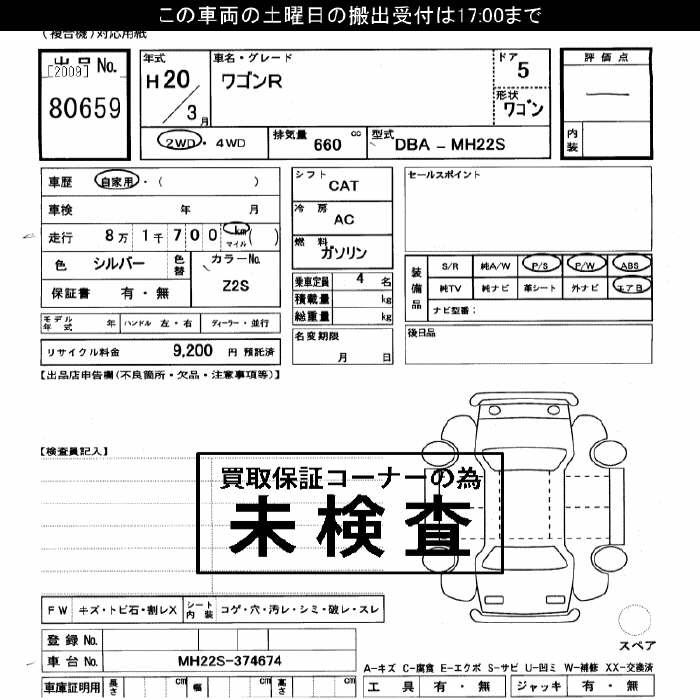 この車両の土曜日の搬出受付は17:00まで
(複合機)対応用紙
出品 No.
[2009]
80659
年式
H20
3月
車名・グレード
ワゴンR
ドア
5
形状
ワゴン
評価点
内装
2WD・4WD
排気量
660 cc
型式
DBA - MH22S
車歴 自家用・( )
車検 年 月
走行 8万 1千 700 km マイル ( )
色 シルバー 色替 カラーNo. Z2S
保証書 有・無
シフト
CAT
冷房
AC
燃料
ガソリン
乗車定員 4 名
積載量 kg
総重量 kg
名変期限
月 日
セールスポイント
装備品
S/R 純A/W P/S P/W ABS
純TV 純ナビ 革シート 外ナビ エアB
ナビ型番:
後日品
モデル年式 年 ハンドル 左・右 ディーラー・並行
リサイクル料金 9,200 円 預託済
【出品店申告欄(不良箇所・欠品・注意事項等)】
【検査員記入】
買取保証コーナーの為
未検査
FW キズ・トビ石・割レX シート内装 コゲ・穴・汚レ・シミ・破レ・スレ
スペア
登録 No.
車台 No. MH22S-374674
A-キズ C-腐食 E-エクボ S-サビ U-凹ミ W-補修 XX-交換済
車庫証明用 長さ cm 幅 cm 高さ cm
工具 有・無 ジャッキ 有・無